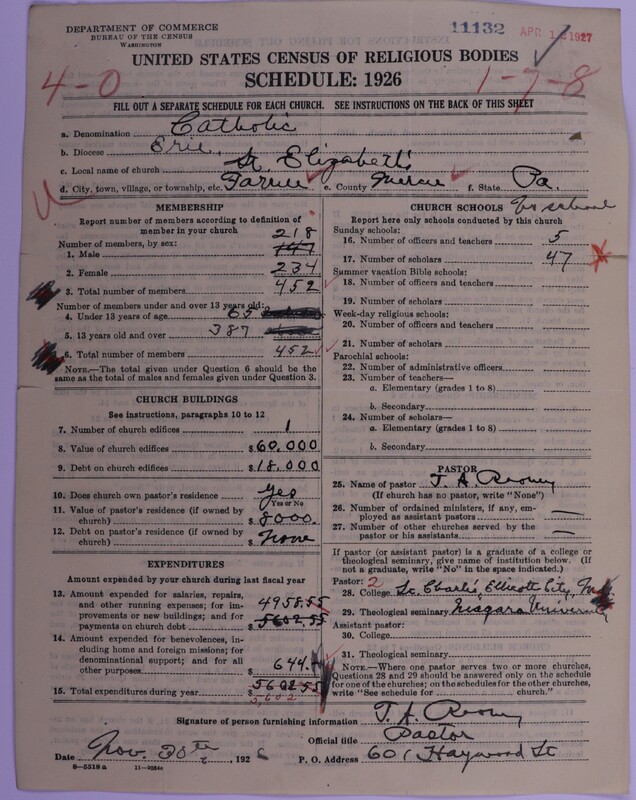 DEPARTMENT OF COMMERCE
BUREAU OF THE CENSUS
WASHINGTON
11132
APR 1 1927
UNITED STATES CENSUS OF RELIGIOUS BODIES
SCHEDULE: 1926
4-0
1-7-8
FILL OUT A SEPARATE SCHEDULE FOR EACH CHURCH. SEE INSTRUCTIONS ON THE BACK OF THIS SHEET
a. Denomination Catholic
b. Diocese Erie,
c. Local name of church St Elizabeth's
d. City, town, village, or township, etc. Farrell e. County Mercer f. State Pa.
MEMBERSHIP
Report number of members according to definition of member in your church
Number of members, by sex:
218
1. Male 147
2. Female 234
3. Total number of members 452
Number of members under and over 13 years old:
4. Under 13 years of age 65
5. 13 years old and over 387
6. Total number of members 452
NOTE.—The total given under Question 6 should be the same as the total of males and females given under Question 3.
CHURCH BUILDINGS
See instructions, paragraphs 10 to 12
7. Number of church edifices 1
8. Value of church edifices $60,000
9. Debt on church edifices $18,000
10. Does church own pastor's residence yes
Yes or No
11. Value of pastor's residence (if owned by church) $8000.
12. Debt on pastor's residence (if owned by church) $none
EXPENDITURES
Amount expended by your church during last fiscal year
13. Amount expended for salaries, repairs, and other running expenses; for improvements or new buildings; and for payments on church debt 4958.55
$5602.55
14. Amount expended for benevolences, including home and foreign missions; for denominational support; and for all other purposes $644.
15. Total expenditures during year $5602.55
5,602
CHURCH SCHOOLS No school
Report here only schools conducted by this church
Sunday schools:
16. Number of officers and teachers 5
17. Number of scholars 47
Summer vacation Bible schools:
18. Number of officers and teachers
19. Number of scholars
Week-day religious schools:
20. Number of officers and teachers
21. Number of scholars
Parochial schools:
22. Number of administrative officers
23. Number of teachers—
a. Elementary (grades 1 to 8)
b. Secondary
24. Number of scholars—
a. Elementary (grades 1 to 8)
b. Secondary
PASTOR
25. Name of pastor T. A. Rooney
(If church has no pastor, write "None")
26. Number of ordained ministers, if any, employed as assistant pastors —
27. Number of other churches served by the pastor or his assistants —
If pastor (or assistant pastor) is a graduate of a college or theological seminary, give name of institution below. (If not a graduate, write "No" in the space indicated.)
Pastor: 2
28. College St. Charles, Ellicott City, Md.
29. Theological seminary Niagara University
Assistant pastor:
30. College
31. Theological seminary
NOTE.—Where one pastor serves two or more churches, Questions 28 and 29 should be answered only on the schedule for one of the churches; on the schedules for the other churches, write "See schedule for church."
Signature of person furnishing information T. A. Rooney
Official title Pastor
Date Nov. 30th, 1926 P. O. Address 601 Haywood St
8—5518 a 11—9584c